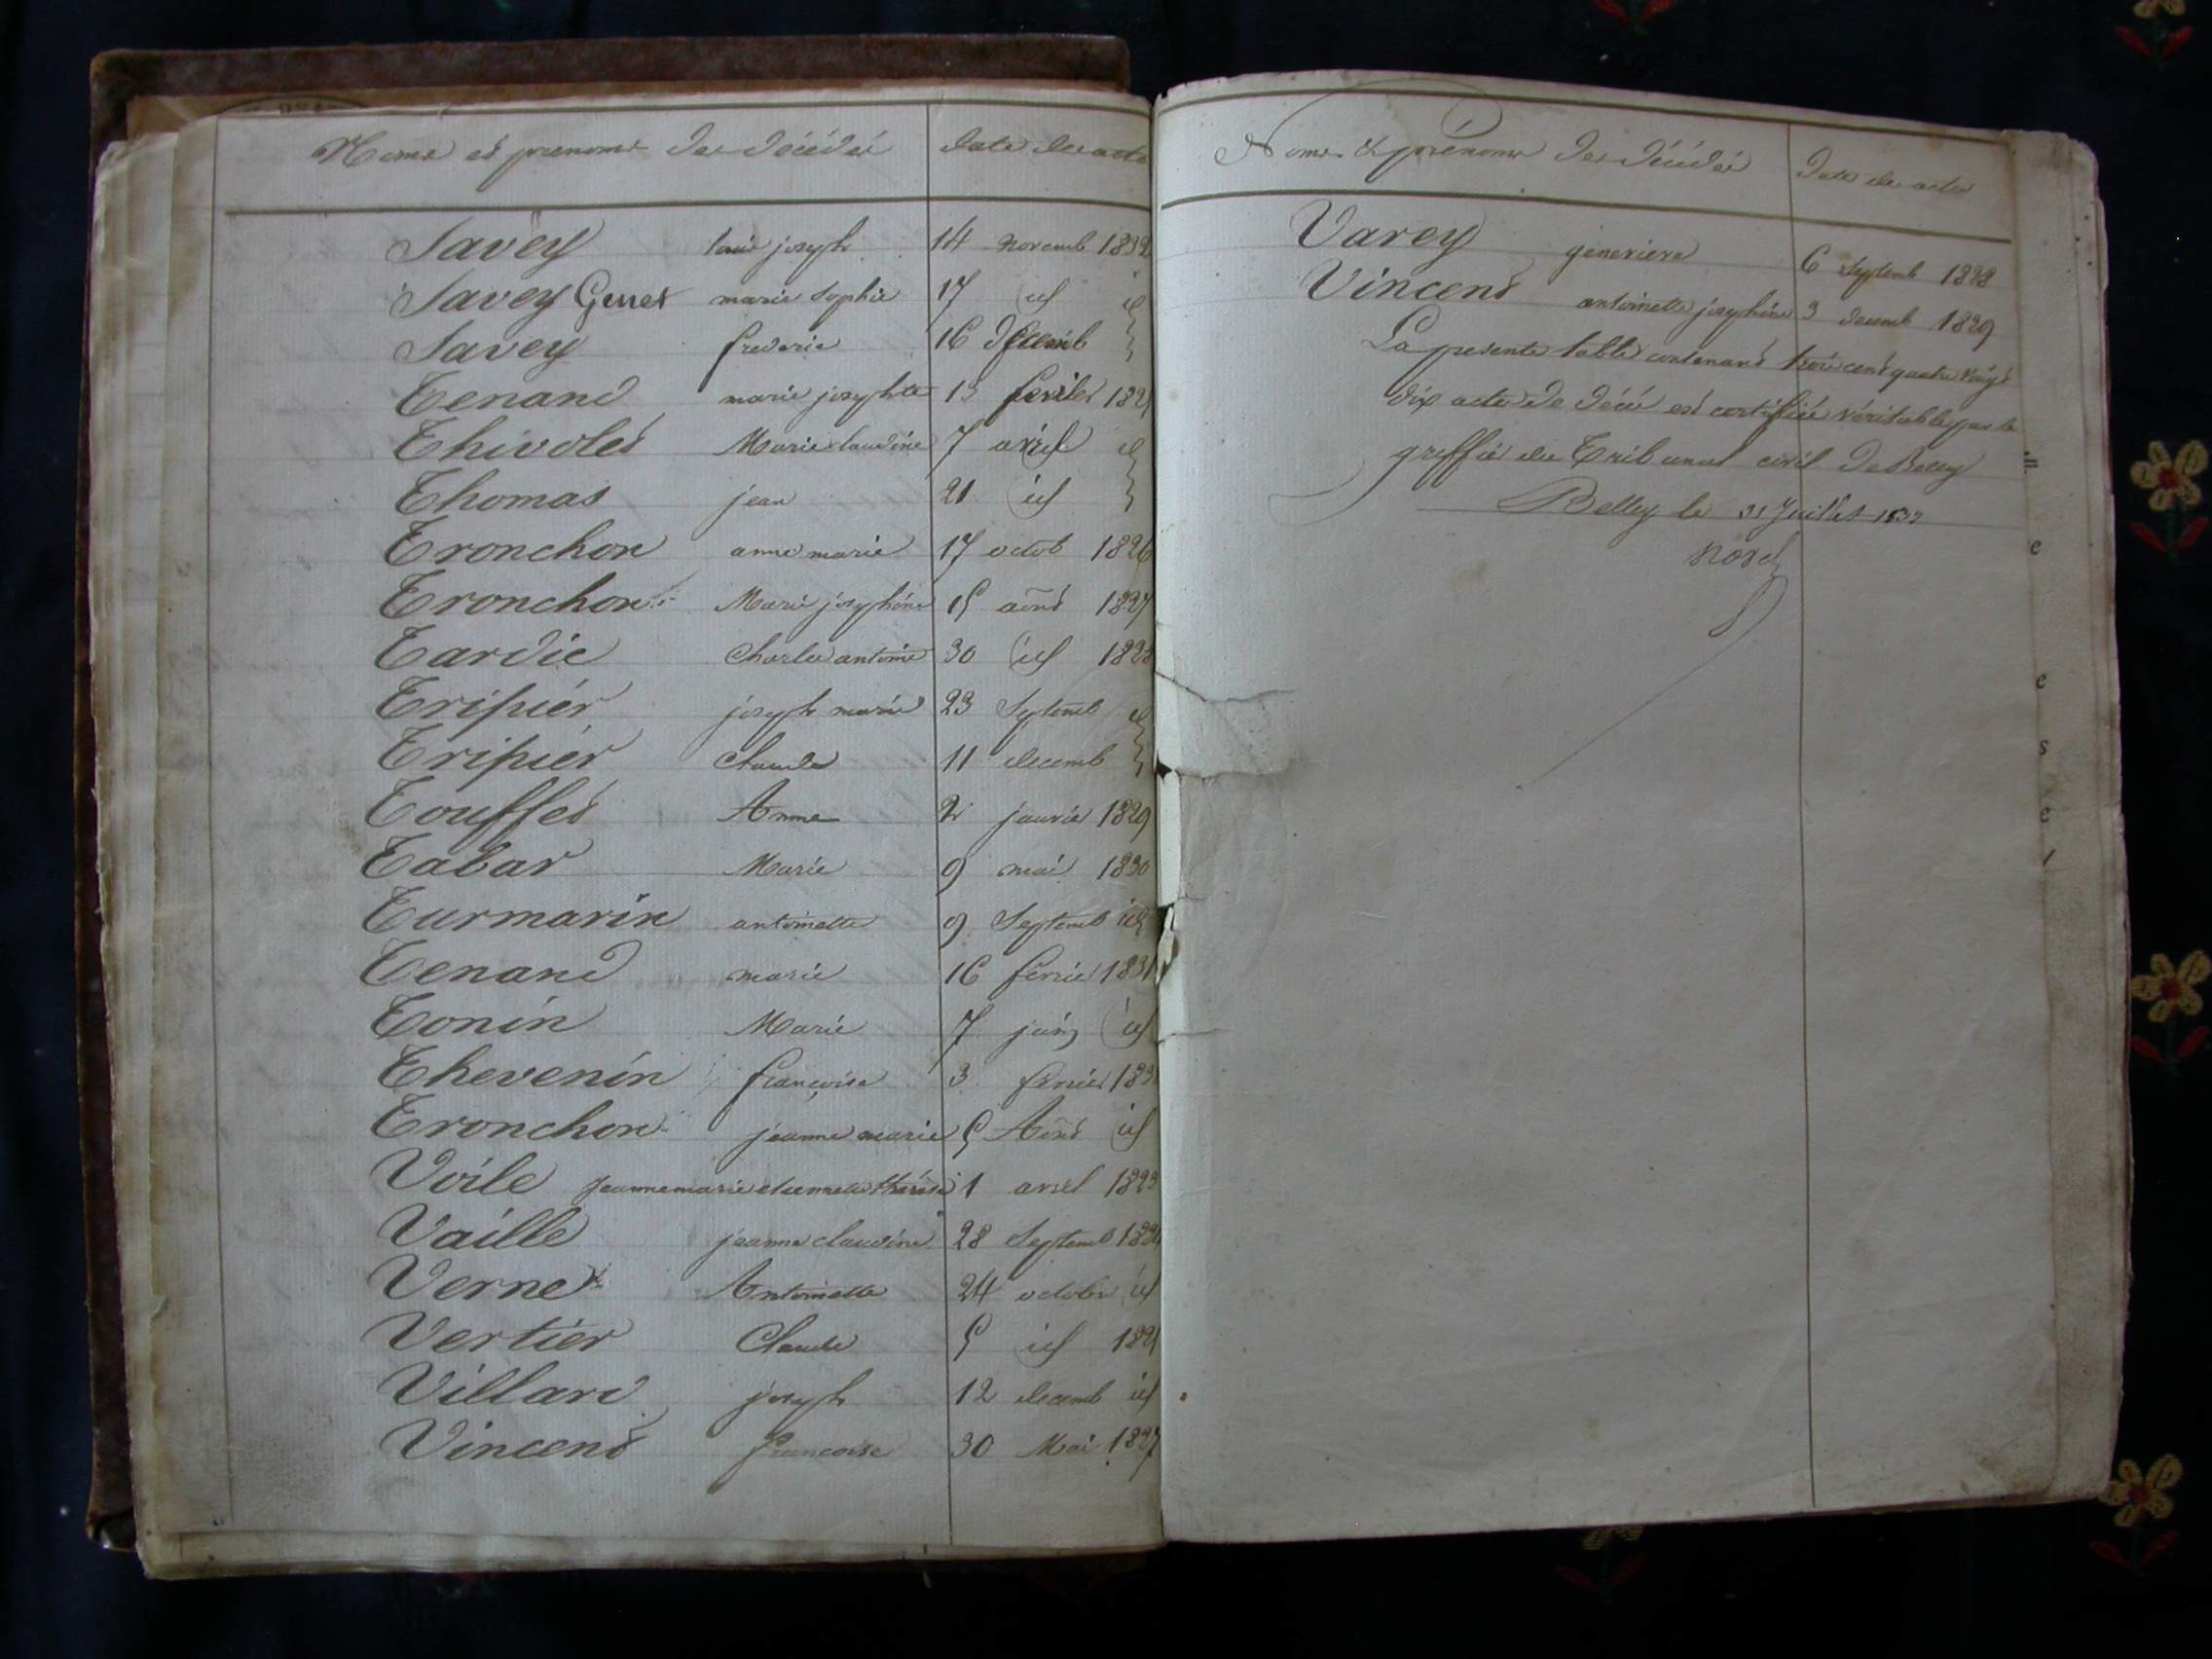 Noms et prenoms des décédés date des actes
Savey louis joseph 14 novemb 1832
Savey Guret marie sophie 17 id id
Savey frederic 16 decemb
Tenand marie josephte 13 fevrier
Thivolet Marie claudine 7 avril id
Thomas jean 21 id
Tronchon anne marie 17 octob 1826
Tronchon Marie joséphine 15 août 1827
Tardie Charles antoine 30 id 1828
Tripier joseph marie 23 Septemb id
Tripier Claude 11 decemb
Touffet Anne 2 janvier 1829
Tabar Marie 9 mai 1830
Turmarin antoinette 9 Septemb id
Tenand marie 16 fevrier 1831
Tonin Marie 7 juin id
Thevenin françoise 3 fevrier
Tronchon jeanne marie 5 Août id
Voile jeanne marie etiennette thérèse 1 avril 1823
Vaille jeanne claudine 28 Septemb
Vernet Antoinette 24 octobre id
Vertier Claude 5 id
Villard joseph 12 decemb id
Vincent francoise 30 Mai 1827
Noms & prénoms des décédés Date des actes
Varey géneviève 6 Septemb 1828
Vincent antoinette joséphine 3 decemb 1829
La presente table contenant trois cent quatre vingt
dix actes de décès est certifiée véritable par le
greffier du Tribunal civil de Belley
Belley le 31 Juillet 1833